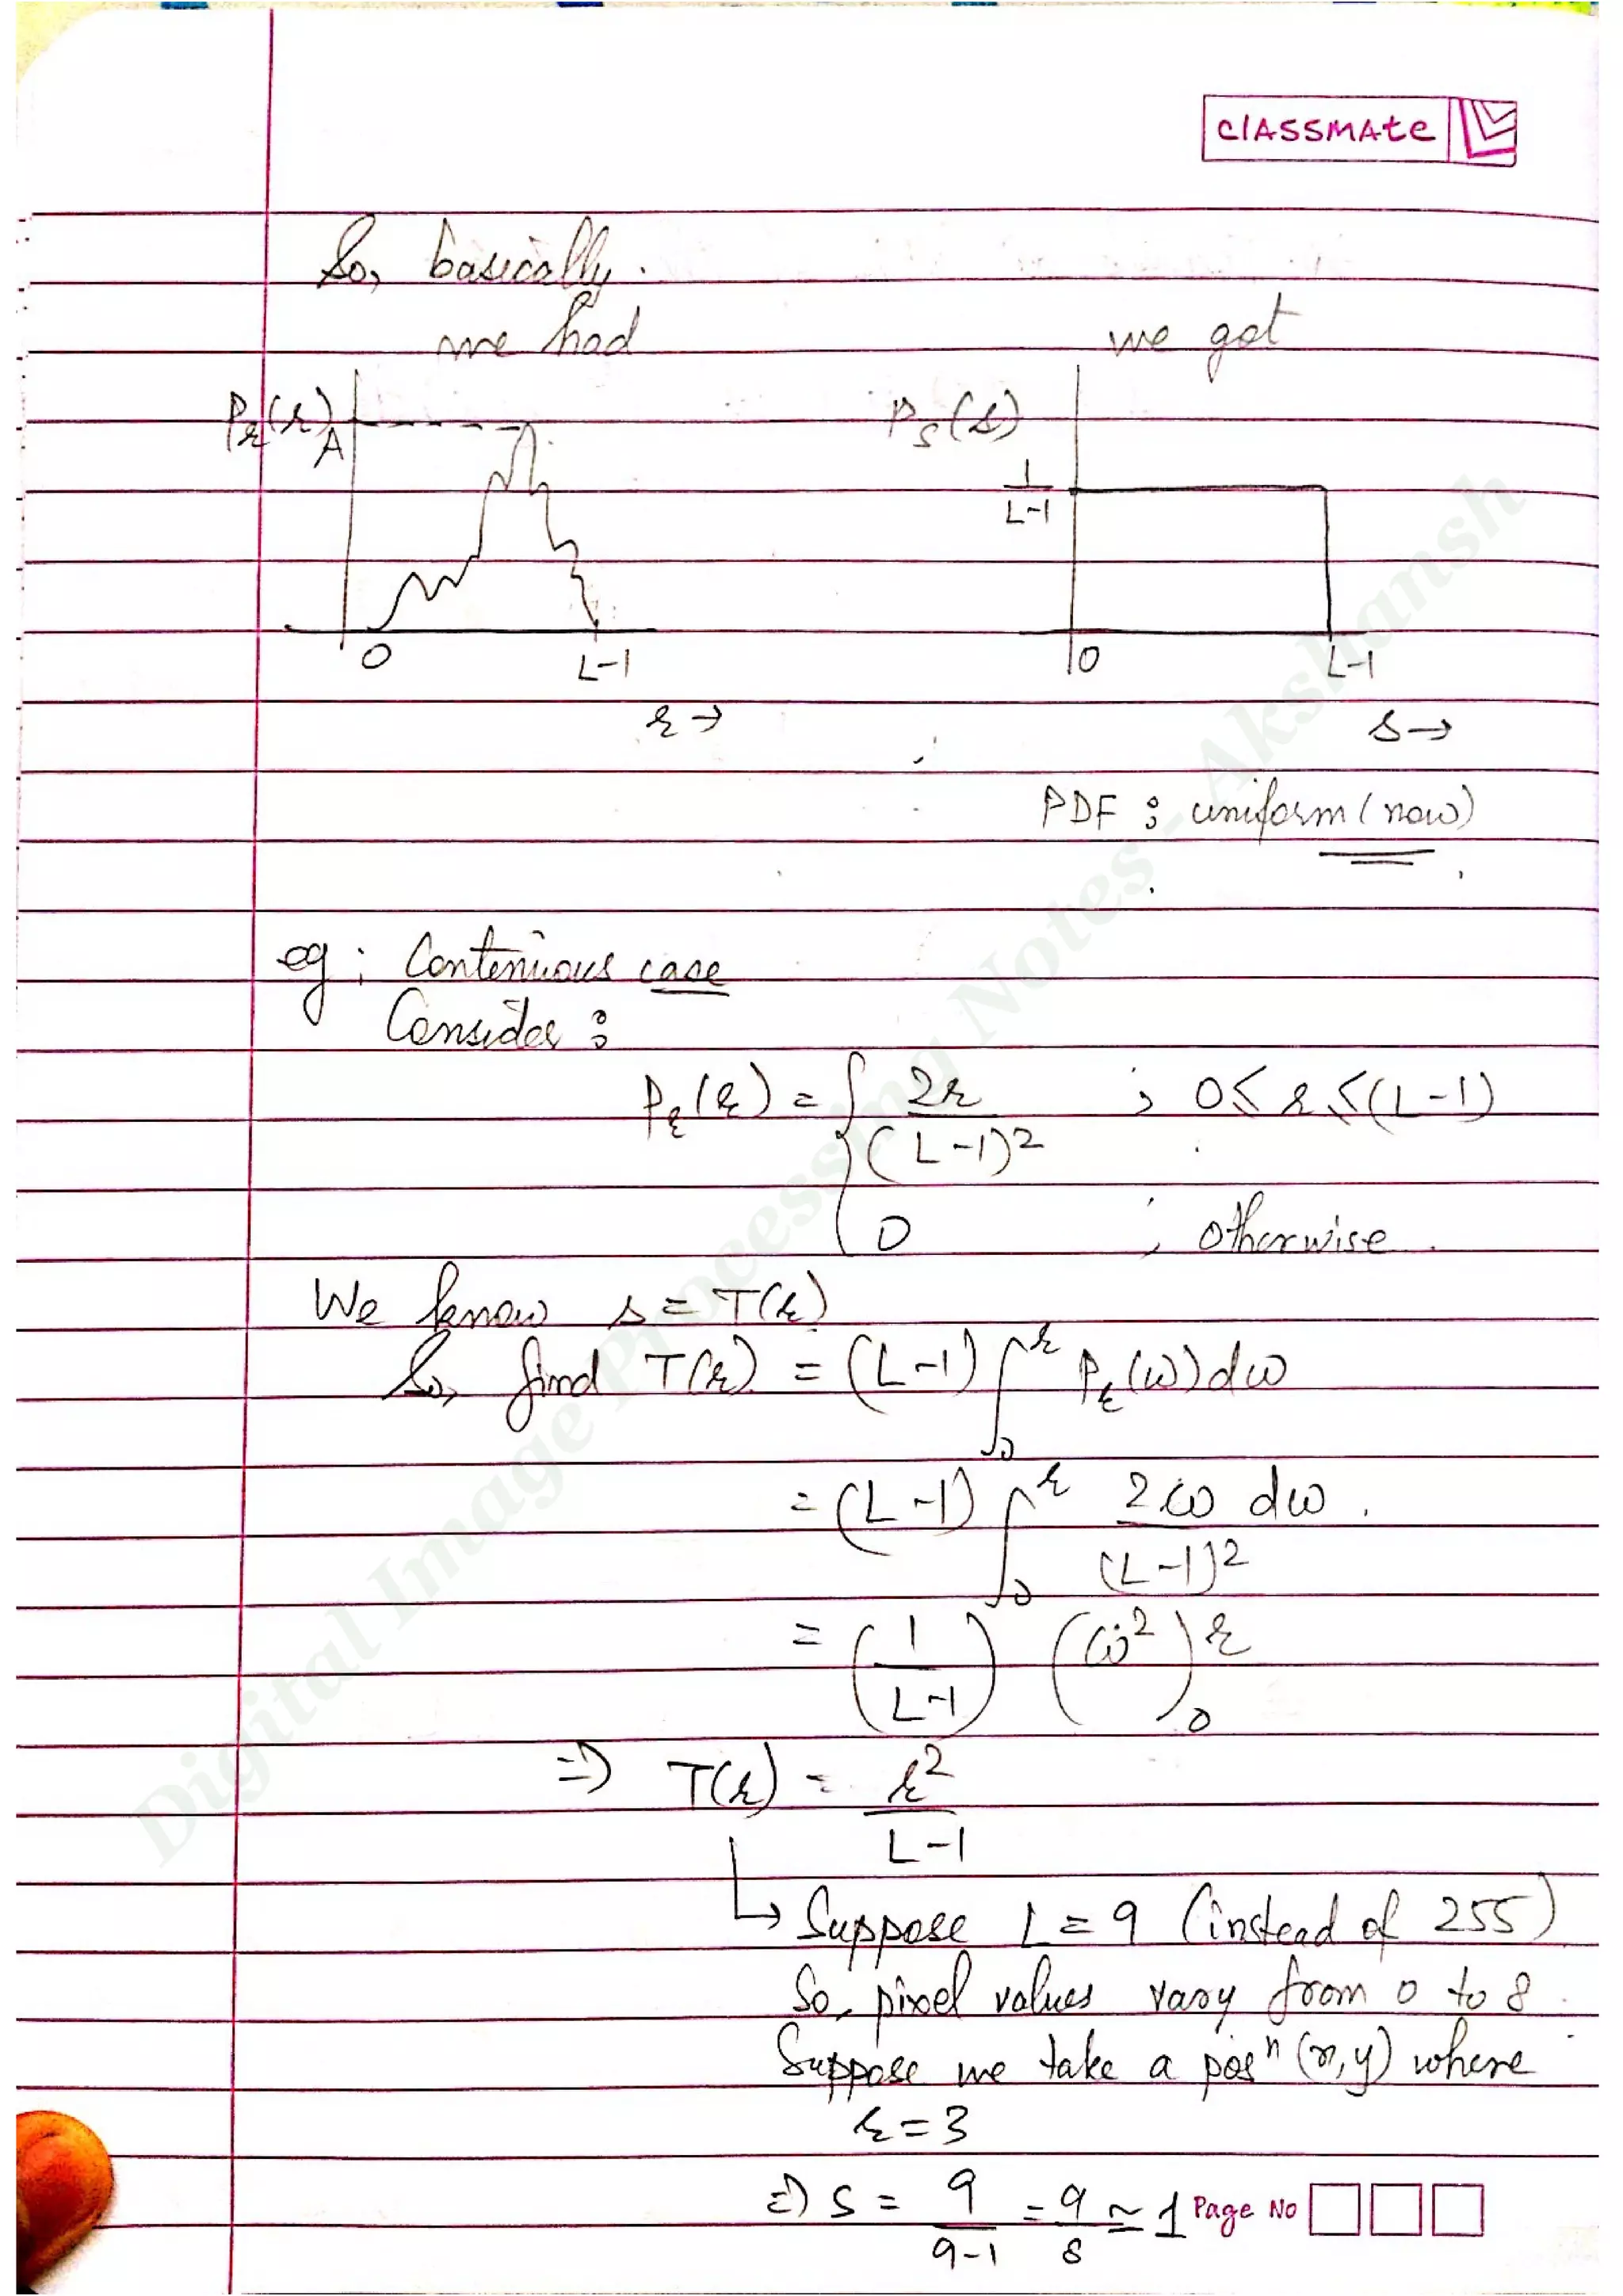 classmate
So, basically.
we had we got
Pr(r) A
Ps(s)
1/(L-1)
0 L-1
0 L-1
r →
s →
PDF : uniform (now)
eg : Contenuous case
Consider :
Pr(r) = { 2r/(L-1)² ; 0 ≤ r ≤ (L-1)
0 ; otherwise.
We know s = T(r)
So, find T(r) = (L-1) ∫₀ʳ Pr(ω)dω
= (L-1) ∫₀ʳ 2ω dω/(L-1)².
= (1/(L-1)) (ω²)₀ʳ
⇒ T(r) = r²/(L-1)
↳ Suppose L = 9 (instead of 255)
So, pixel values vary from 0 to 8.
Suppose we take a posⁿ (x,y) where
r = 3
⇒ s = 9/(9-1) = 9/8 ≃ 1
Page No
Digital Image Processing Notes - Akshansh